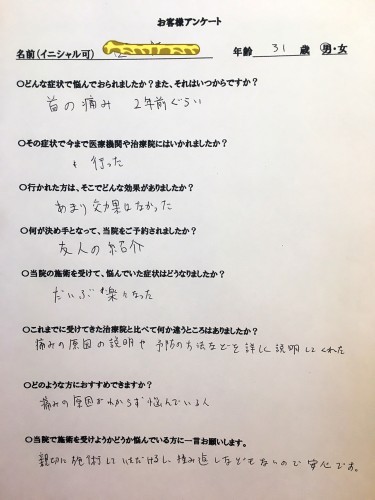 お客様アンケート
名前(イニシャル可)
年齢 31 歳 男・女
○どんな症状で悩んでおられましたか?また、それはいつからですか?
首の痛み 2年前ぐらい
○その症状で今まで医療機関や治療院にはいかれましたか?
行った
○行かれた方は、そこでどんな効果がありましたか?
あまり効果はなかった
○何が決め手となって、当院をご予約されましたか?
友人の紹介
○当院の施術を受けて、悩んでいた症状はどうなりましたか?
だいぶ楽になった
○これまでに受けてきた治療院と比べて何か違うところはありましたか?
痛みの原因の説明や予防の方法などを詳しく説明してくれた
○どのような方におすすめできますか?
痛みの原因がわからず悩んでいる人
○当院で施術を受けようかどうか悩んでいる方に一言お願いします。
親切に施術していただけるし揉み返しなどもないので安心です。